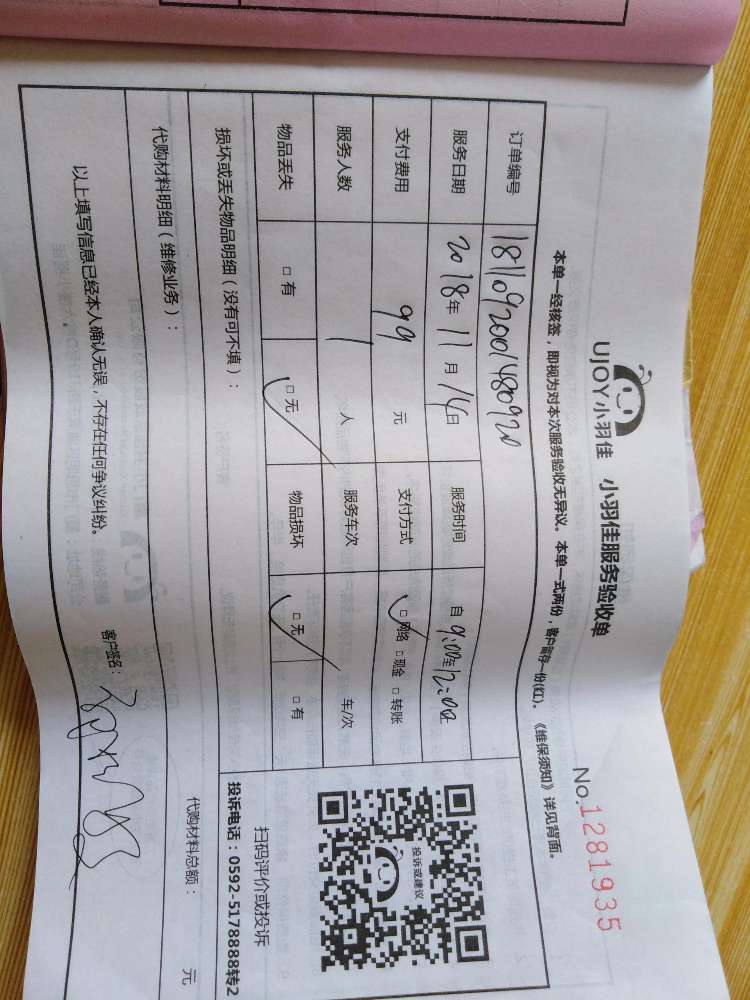 UJOY小羽佳 小羽佳服务验收单
No.1281935
本单一经核签，即视为对本次服务验收无异议。本单一式两份，客户留存一份(红)。《维保须知》详见背面。
订单编号 1811092001480920
服务日期 2018年 11月 14日 服务时间 自 9:00至12:00
支付费用 99 元 支付方式 □网络 □现金 □转账
服务人数 1 人 服务车次 车/次
物品丢失 □有 □无 物品损坏 □无 □有
投诉或建议
扫码评价或投诉
投诉电话：0592-5178888转2
损坏或丢失物品明细（没有可不填）：
代购材料明细（维修业务）：
代购材料总额： 元
以上填写信息已经本人确认无误，不存在任何争议纠纷。
客户签名：